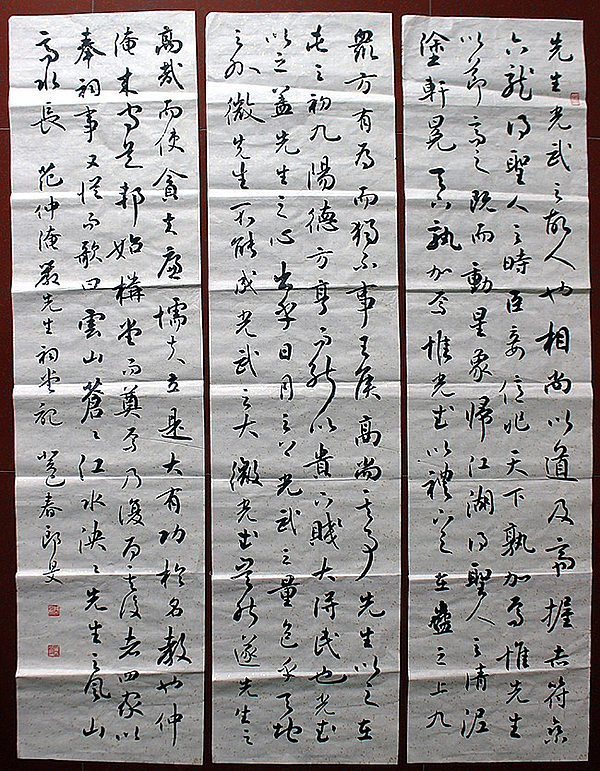 先生光武之故人也相尚以道及帝握赤符乘
六龍得聖人之時臣妾億兆天下孰加焉惟先生
以節高之既而動星象歸江湖得聖人之清泥
塗軒冕天下孰加焉惟光武以禮下之在蠱之上九
眾方有為而獨不事王侯高尚其事先生以之在
屯之初九陽德方亨而能以貴下賤大得民也光武
以之蓋先生之心出乎日月之上光武之量包乎天地
之外微先生不能成光武之大微光武豈能遂先生之
高哉而使貪夫廉懦夫立是大有功於名教也仲
淹來守是邦始構堂而奠焉乃復為其後者四家以
奉祠事又從而歌曰雲山蒼々江水泱々先生之風山
高水長 范仲淹嚴先生祠堂記 春郎